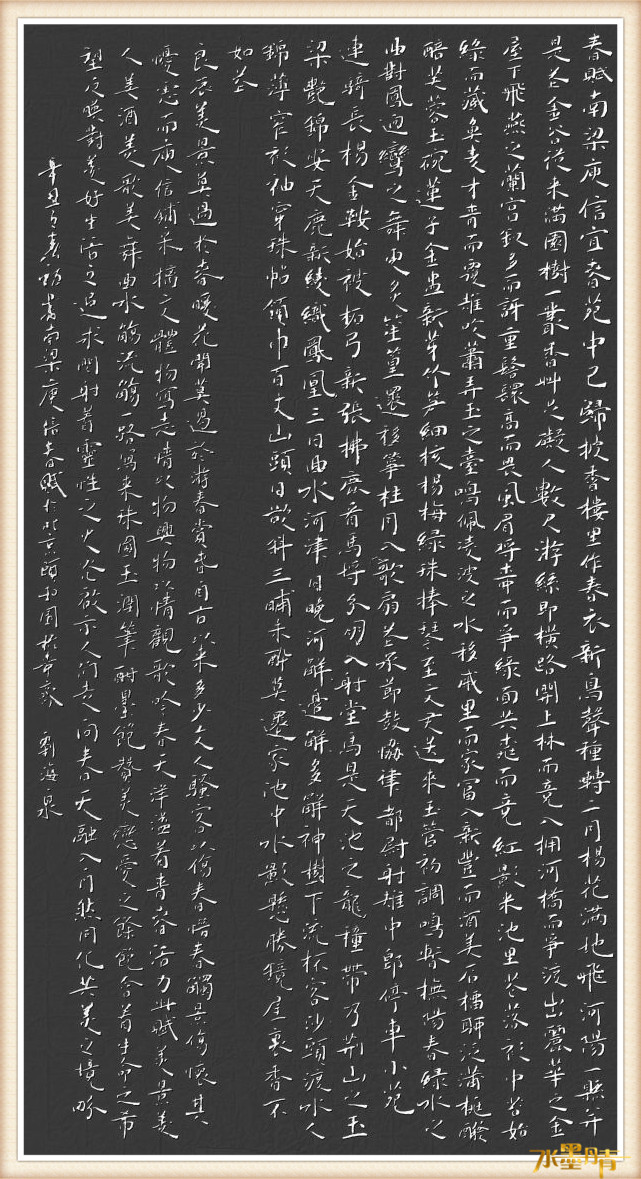 春賦南梁庾信宜春苑中已歸披香樓里作春衣新鳥聲種轉二月楊花滿地飛河陽一縣并
是花金谷從来滿園樹一叢香艸足礙人數尺游絲即橫路開上林而竟入擁河橋而爭渡出麗華之金
屋下飛燕之蘭宫釵多而訝重髻鬟高而畏風眉將柳而爭綠面共桃而竟紅影来池里花落衫中苔始
綠而藏魚麦才青而覆雉吹蕭弄玉之臺鳴佩凌波之水移戚里而家富入新豐而酒美石榴聊泛蒲桃醱
醅芙蓉玉碗蓮子金盃新芽竹笋細核楊梅綠珠捧琴至文君送来玉管初調鳴暫撫陽春綠水之
曲對鳳迴鸞之舞更炙笙簧還移箏柱月入歌扇花承節鼓協律都尉射雉中郎停車小苑
連騎長楊金鞍始被柘弓新張拂塵看馬埒分朋入射堂馬是天池之龍種帶乃荆山之玉
梁艷錦安天鹿新綾織鳳凰三日曲水河津日晚河解邊解多解神樹下流杯客沙頭渡水人
錦薄窄衫袖穿珠帖領巾百丈山頭日欲斜三晡未醉莫還家池中水影懸勝鏡屋裏香不
如花
良辰美景莫過於春暖花開莫過於游春賞春自古以来多少文人騷客以傷春惜春觸景傷懷其
憂戀而庾信鋪采摛文體物寫志情以物興物以情觀歌吟春天洋溢着青春活力此賦美景美
人美酒美歌美舞曲水觴流觴一路寫来珠圓玉潤筆酣墨飽贊美戀愛之餘飽含着生命之節
型反映對美好生活之追求閃射着靈性之火花啟示人们走向春天融入自然同化共美之境畍
辛丑立春劼書南梁庾信春賦於北京頤和園於奇家 劉海泉
水墨晴